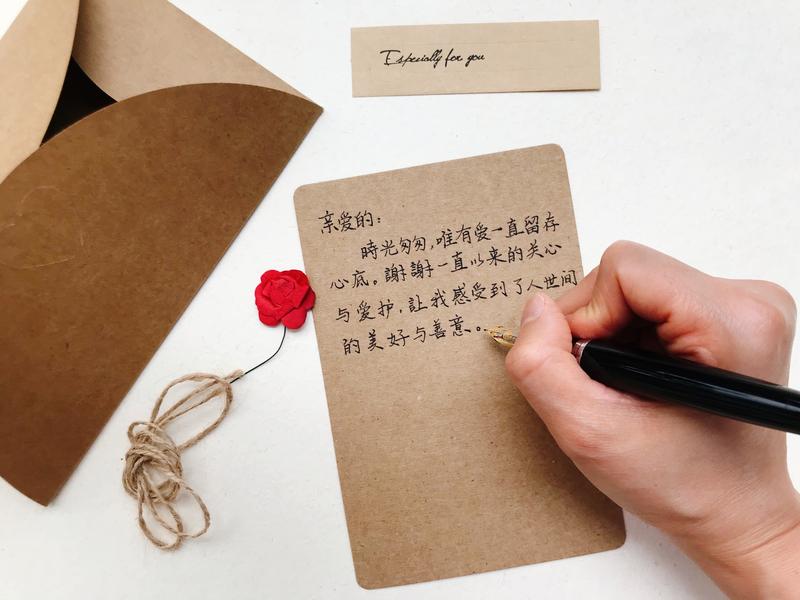 Especially for you
亲爱的：
時光匆匆，唯有爱一直留存
心底。謝謝一直以来的关心
与爱护，讓我感受到了人世间
的美好与善意。